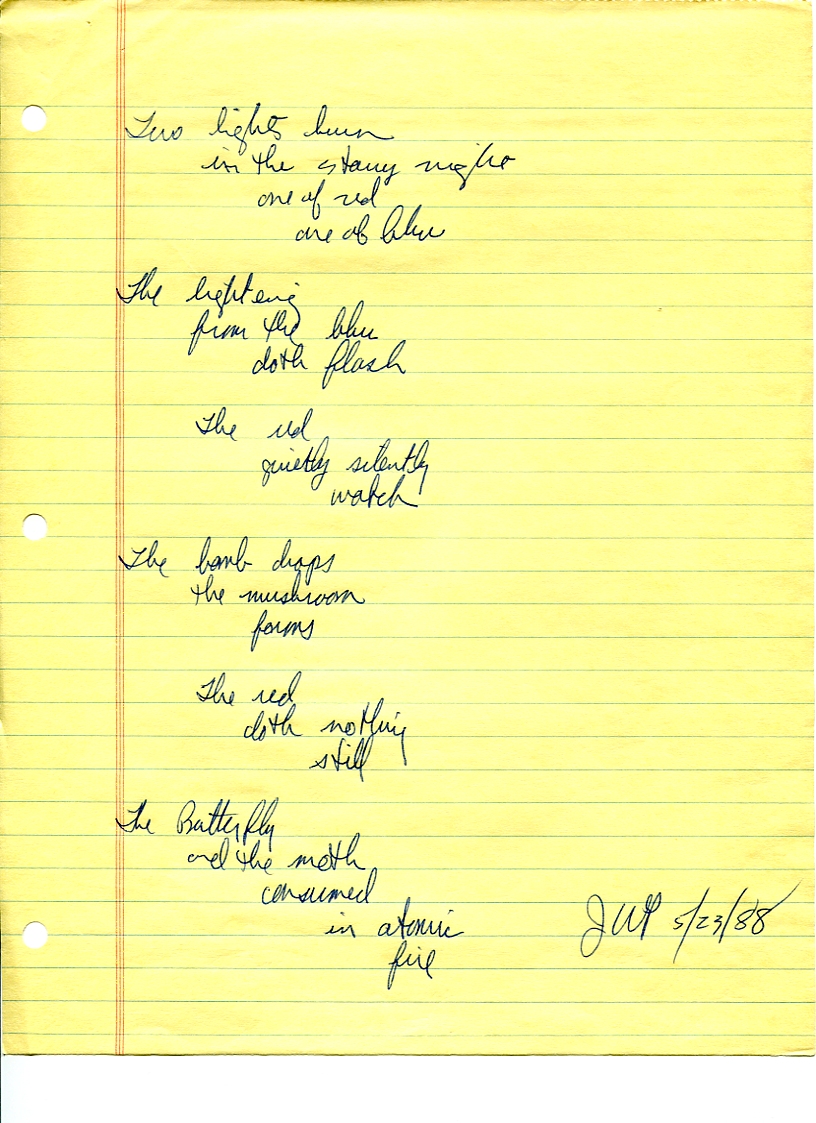 Two lights burn
in the starry night
one of red
one of blue
The lightening
from the blue
doth flash
The red
quietly silently
watch
The bomb drops
the mushroom
forms
The red
doth nothing
still
The Butterfly
and the moth
consumed
in atomic
fire
JWP 5/23/88